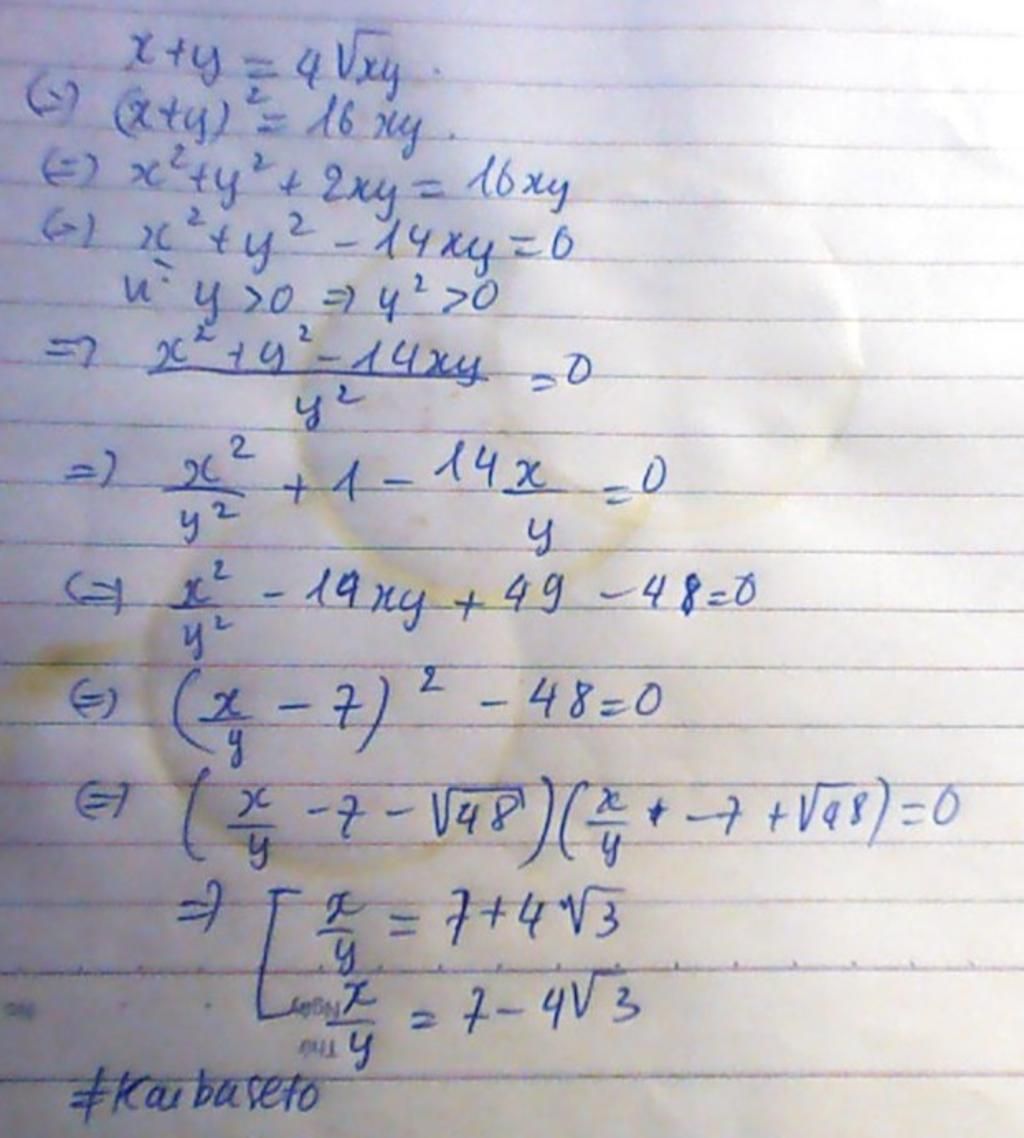 x+y = 4√xy.
(=) (x+y)² = 16xy.
(=) x²+y² + 2xy = 16xy
(=) x²+y² - 14xy = 0
vì y>0 => y²>0
=> (x²+y²-14xy)/y² = 0
=> x²/y² + 1 - 14x/y = 0
(=) x²/y² - 14xy + 49 - 48 = 0
(=) (x/y - 7)² - 48 = 0
(=) (x/y - 7 - √48)(x/y - 7 + √48) = 0
=> [ x/y = 7+4√3
x/y = 7-4√3
Ngày
Thứ
#Kaibaseto